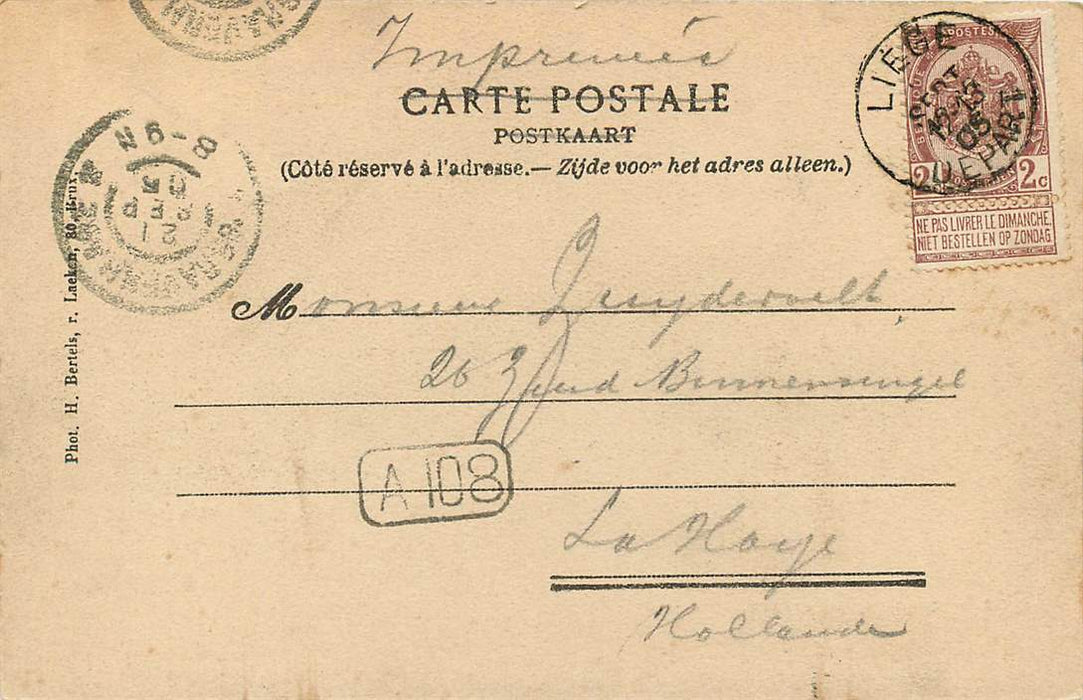 Imprimés
CARTE POSTALE
POSTKAART
(Côté réservé à l'adresse.— Zijde voor het adres alleen.)
LIÉGE
DEPART
POSTES
2 2c
NE PAS LIVRER LE DIMANCHE
NIET BESTELLEN OP ZONDAG
8-9N
Phot. H. Bertels, r. Laeken, 80, Brux.
Monsieur Zuydervelt
26 Zuid Binnensingel
A 108
La Haye
Hollande